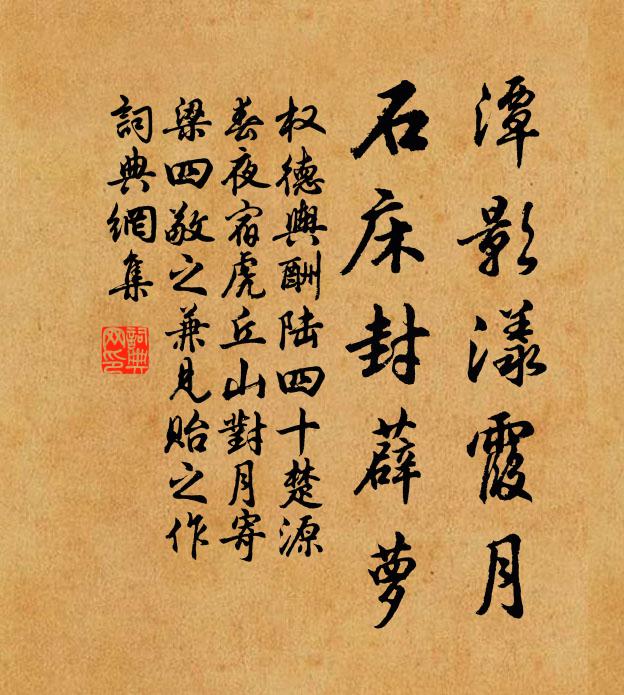 潭影漾霞月
石床封薜萝
权德輿酬陆四十楚源
春夜宿虎丘山對月寄
梁四敬之兼見貽之作
詞典網集
詞典网印